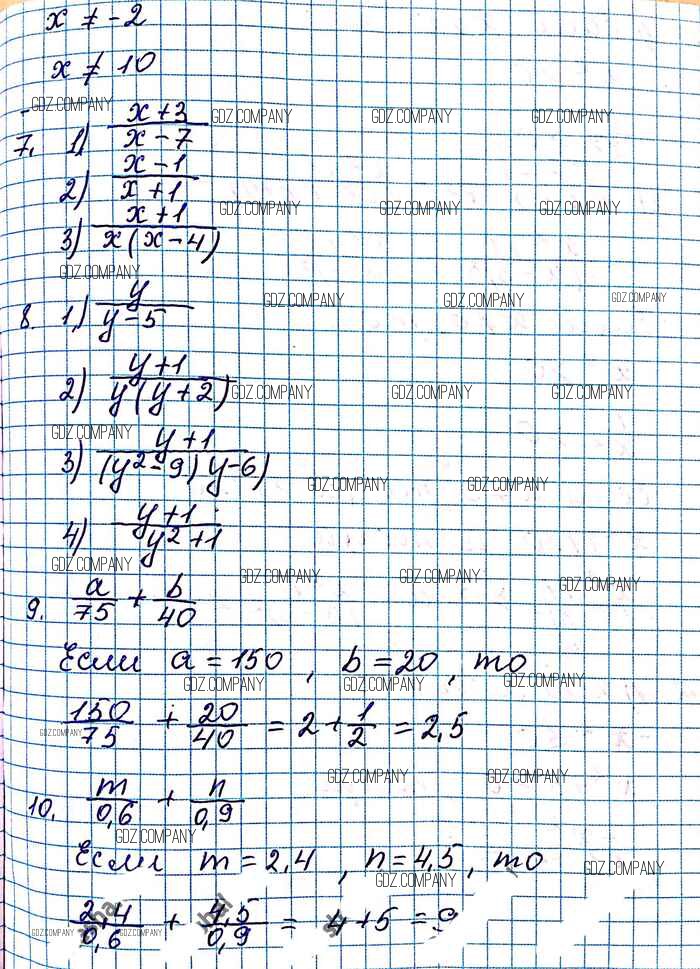 x ≠ -2
x ≠ 10
GDZ.COMPANY GDZ.COMPANY GDZ.COMPANY GDZ.COMPANY
7. 1) (x+3)/(x-7)
2) (x-1)/(x+1)
GDZ.COMPANY GDZ.COMPANY GDZ.COMPANY
3) (x+1)/(x(x-4))
GDZ.COMPANY GDZ.COMPANY GDZ.COMPANY GDZ.COMPANY
8. 1) y/(y-5)
2) (y+1)/(y(y+2))
GDZ.COMPANY GDZ.COMPANY GDZ.COMPANY
GDZ.COMPANY
3) (y+1)/((y²-9)y-6)
GDZ.COMPANY GDZ.COMPANY
4) (y+1)/(y²+1)
GDZ.COMPANY GDZ.COMPANY GDZ.COMPANY GDZ.COMPANY
9. a/75 + b/40
Если a=150, b=20, то
GDZ.COMPANY GDZ.COMPANY GDZ.COMPANY
150/75 + 20/40 = 2 + 1/2 = 2,5
GDZ.COMPANY
GDZ.COMPANY GDZ.COMPANY
10. m/0,6 + n/0,9
GDZ.COMPANY
Если m=2,4, n=4,5, то
GDZ.COMPANY GDZ.COMPANY
2,4/0,6 + 4,5/0,9 = 4+5=9
GDZ.COMPANY GDZ.COMPANY